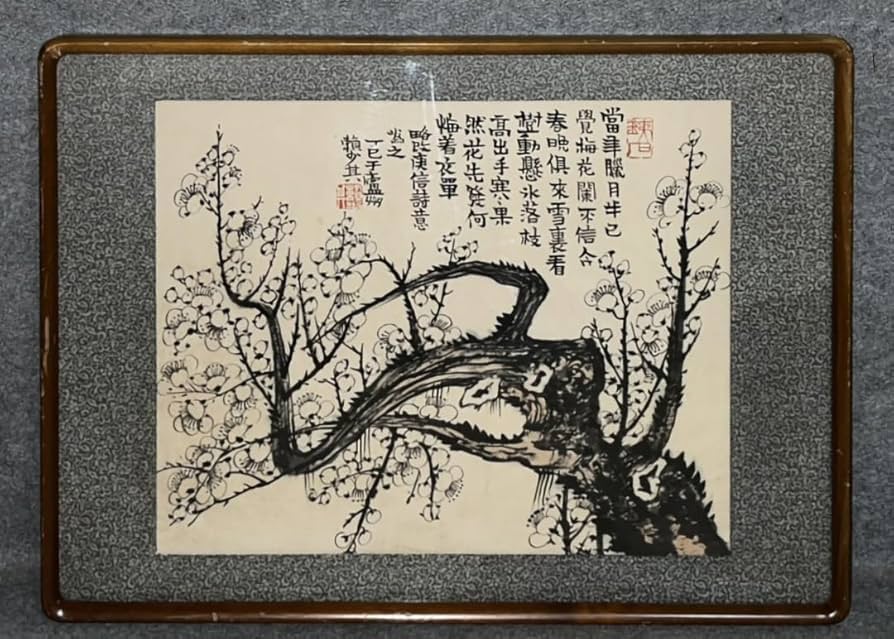 當年臘月半已
覺梅花闌不信今
春晚俱來雪裏看
樹動懸冰落枝
高出手寒果
然花先發何
悔着衣單
略改庾信詩意
為之
丁巳于廬州
賴少其